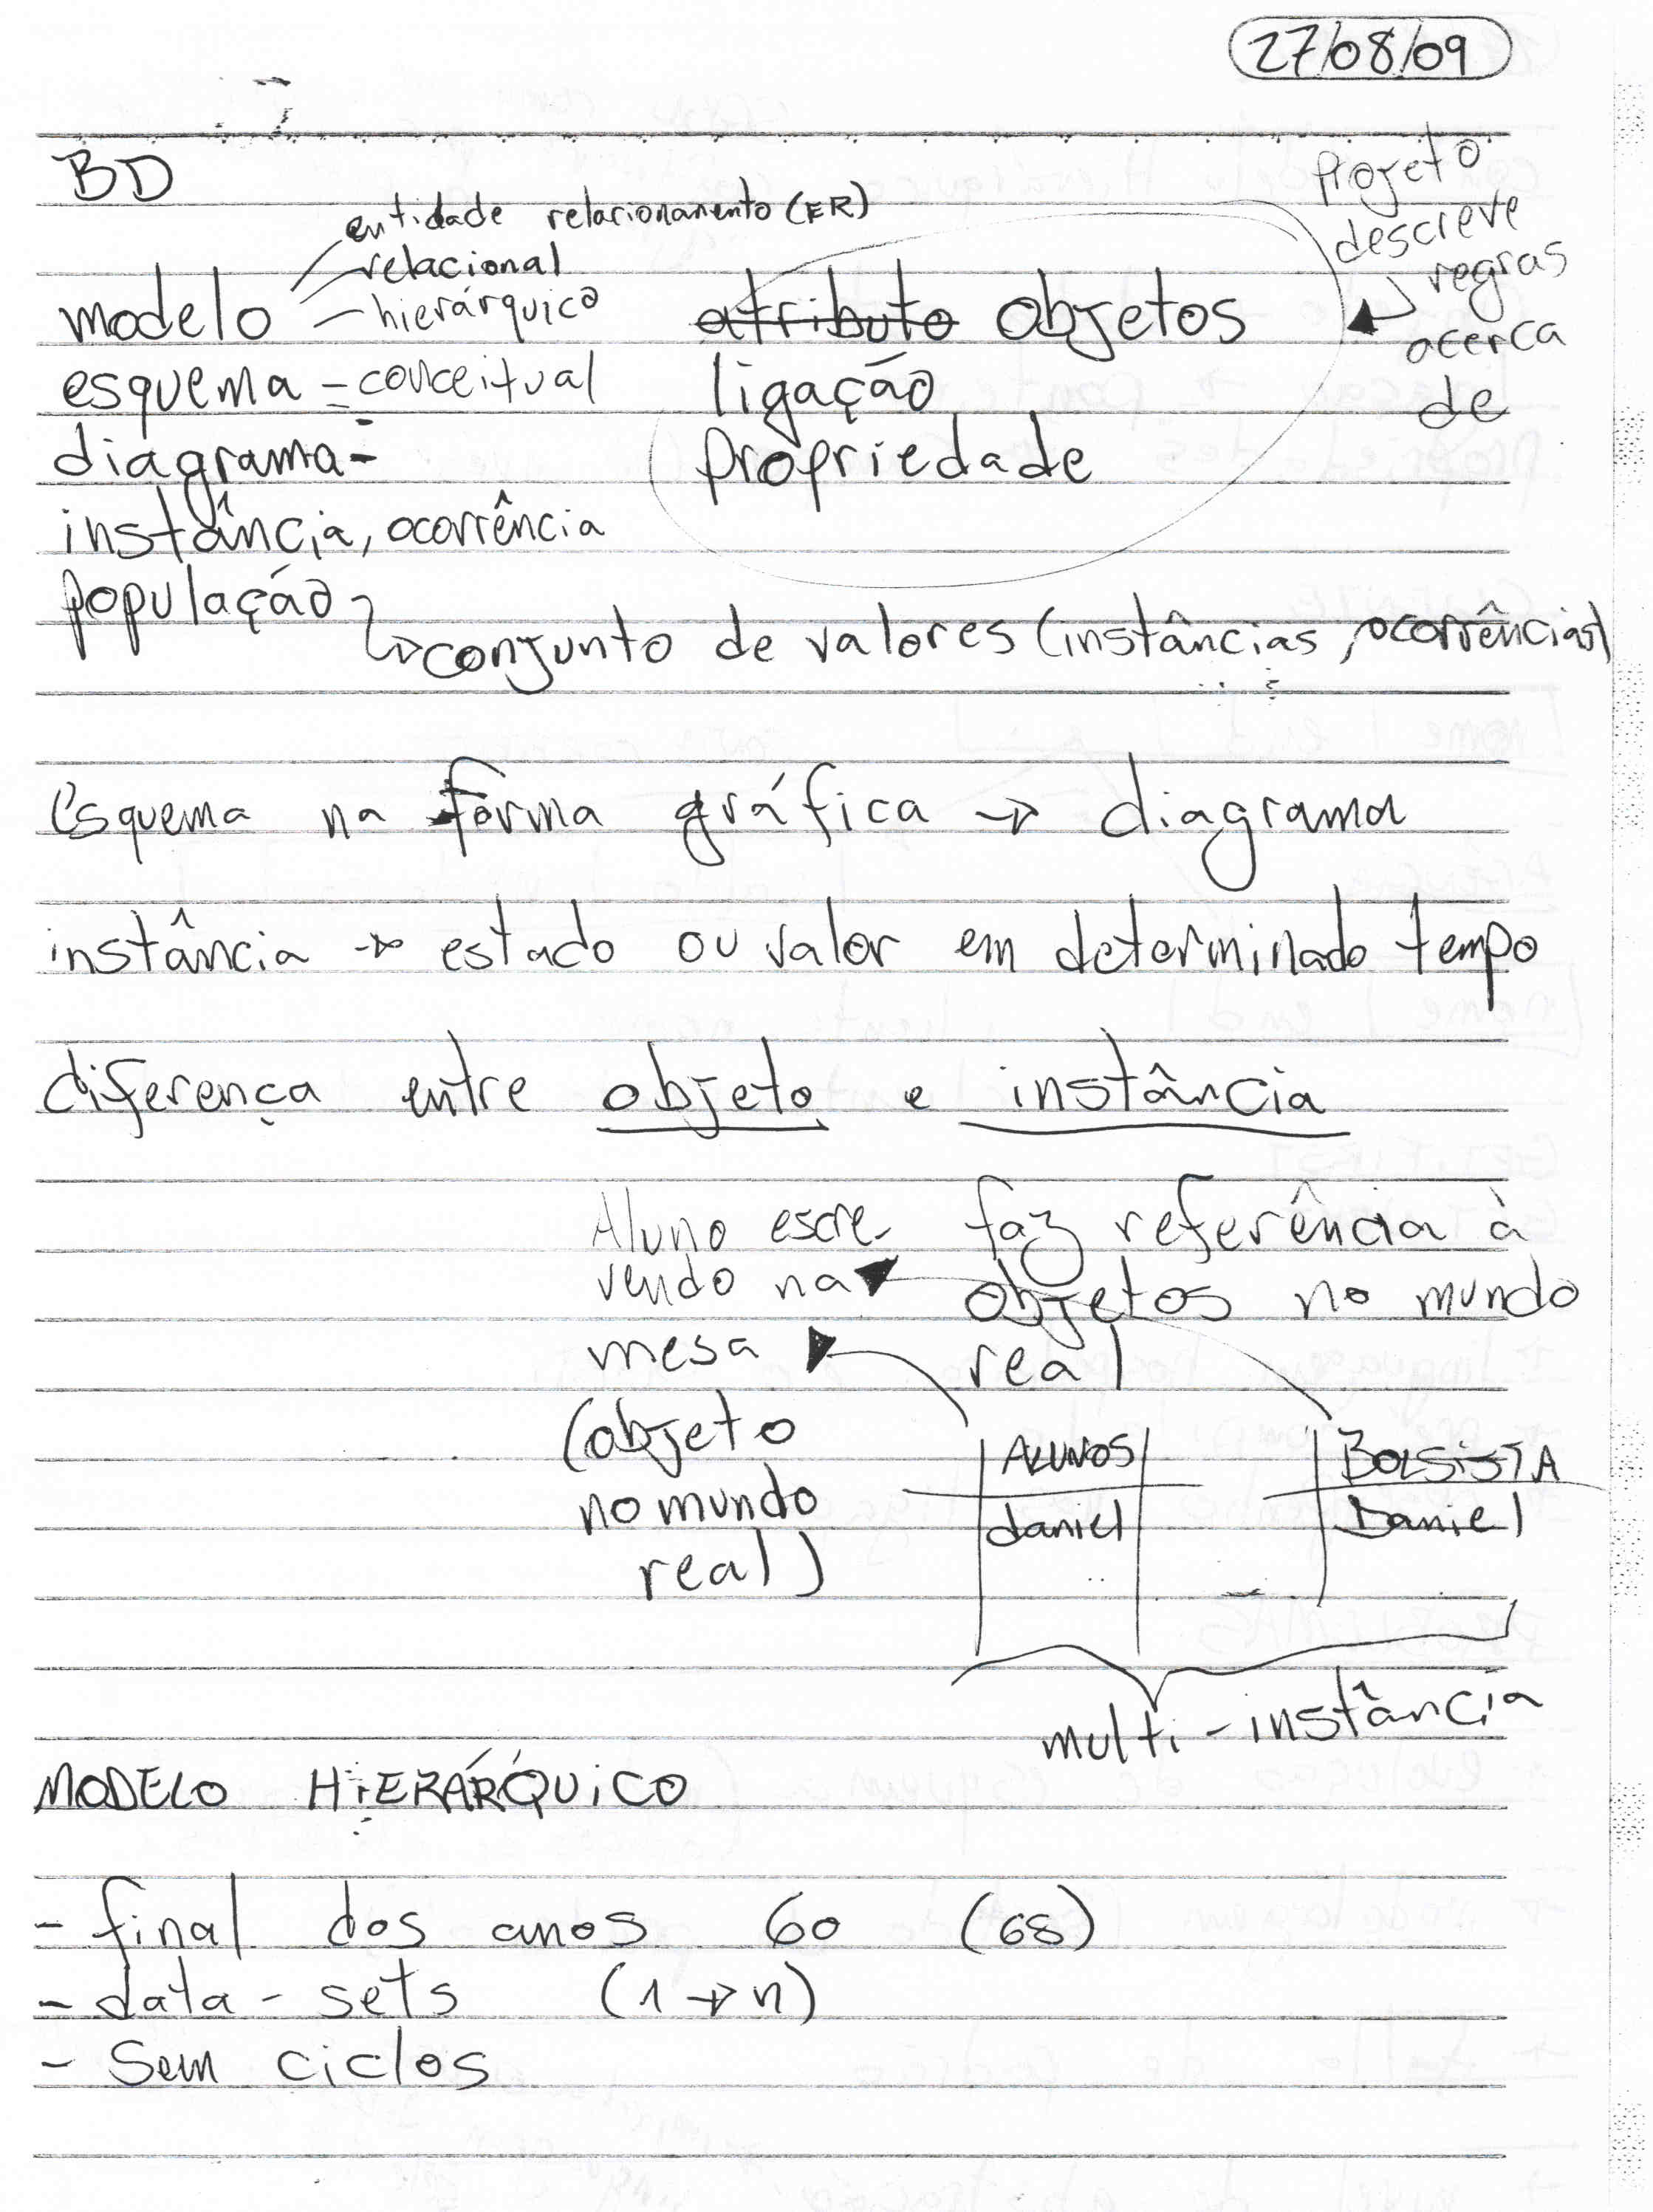 27/08/09
BD
entidade relacionamento (ER)
relacional
modelo - hierárquico
esquema - conceitual
diagrama -
instância, ocorrência
população
conjunto de valores (instâncias, ocorrências)
atributo objetos
ligação
propriedade
Projeto
descreve
regras
acerca
de
Esquema na forma gráfica → diagrama
instância → estado ou valor em determinado tempo
diferença entre objeto e instância
Aluno escre-
vendo na
mesa
(objeto
no mundo
real)
faz referência à
objetos no mundo
real
ALUNOS
daniel
BOLSISTA
Daniel
multi-instância
MODELO HiERÁRQUiCO
- final dos anos 60 (68)
- data-sets (1 → n)
- Sem ciclos